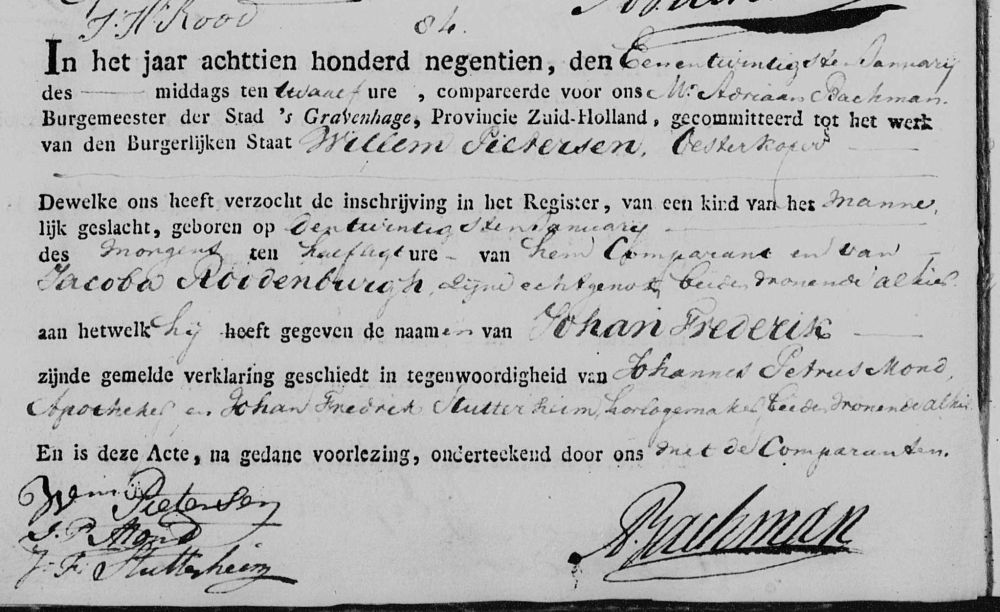 J. H. Rood
84.
In het jaar achttien honderd negentien, den Eenentwintigsten Januarij
des — middags ten twaalf ure , compareerde voor ons Mr. Adriaan Bachman.
Burgemeester der Stad 's Gravenhage, Provincie Zuid-Holland, gecommitteerd tot het werk
van den Burgerlijken Staat Willem Pietersen, Oesterkoper
Dewelke ons heeft verzocht de inschrijving in het Register, van een kind van het manne,
lijk geslacht, geboren op den twintigsten Januarij
des morgens ten half agt ure — van hem Comparant en van
Jacoba Roodenburgh, zijne echtgenote, beide wonende alhier
aan hetwelk hij heeft gegeven de naamen van Johan Frederik
zijnde gemelde verklaring geschiedt in tegenwoordigheid van Johannes Petrus Mond,
Apotheker en Johan Fredrik Stutterheim, horlogemaker, beide wonende alhier.
En is deze Acte, na gedane voorlezing, onderteekend door ons met de Comparanten.
Wem Pietersen
J. P. Mond
J. F. Stutterheim
A. Bachman